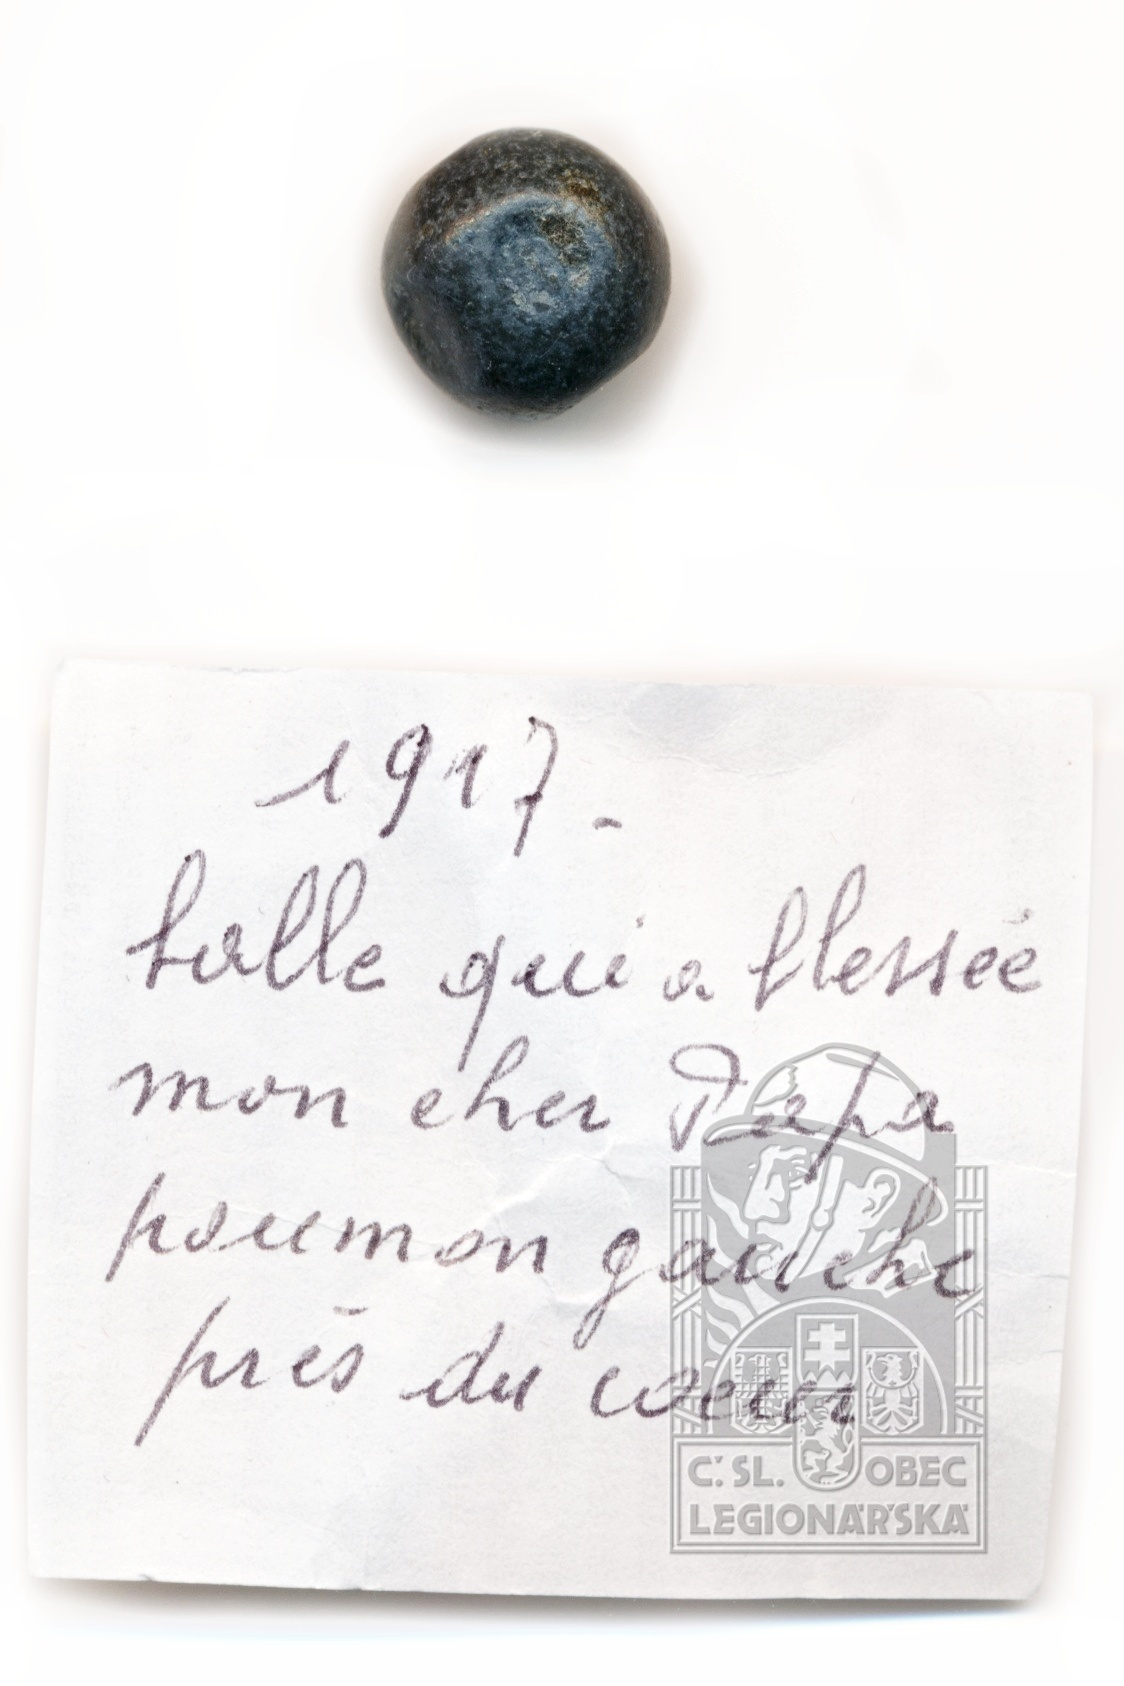 1917-
balle qui a blessée
mon cher Papa
poumon gauche
près du coeur
Č. SL. OBEC
LEGIONÁŘSKÁ